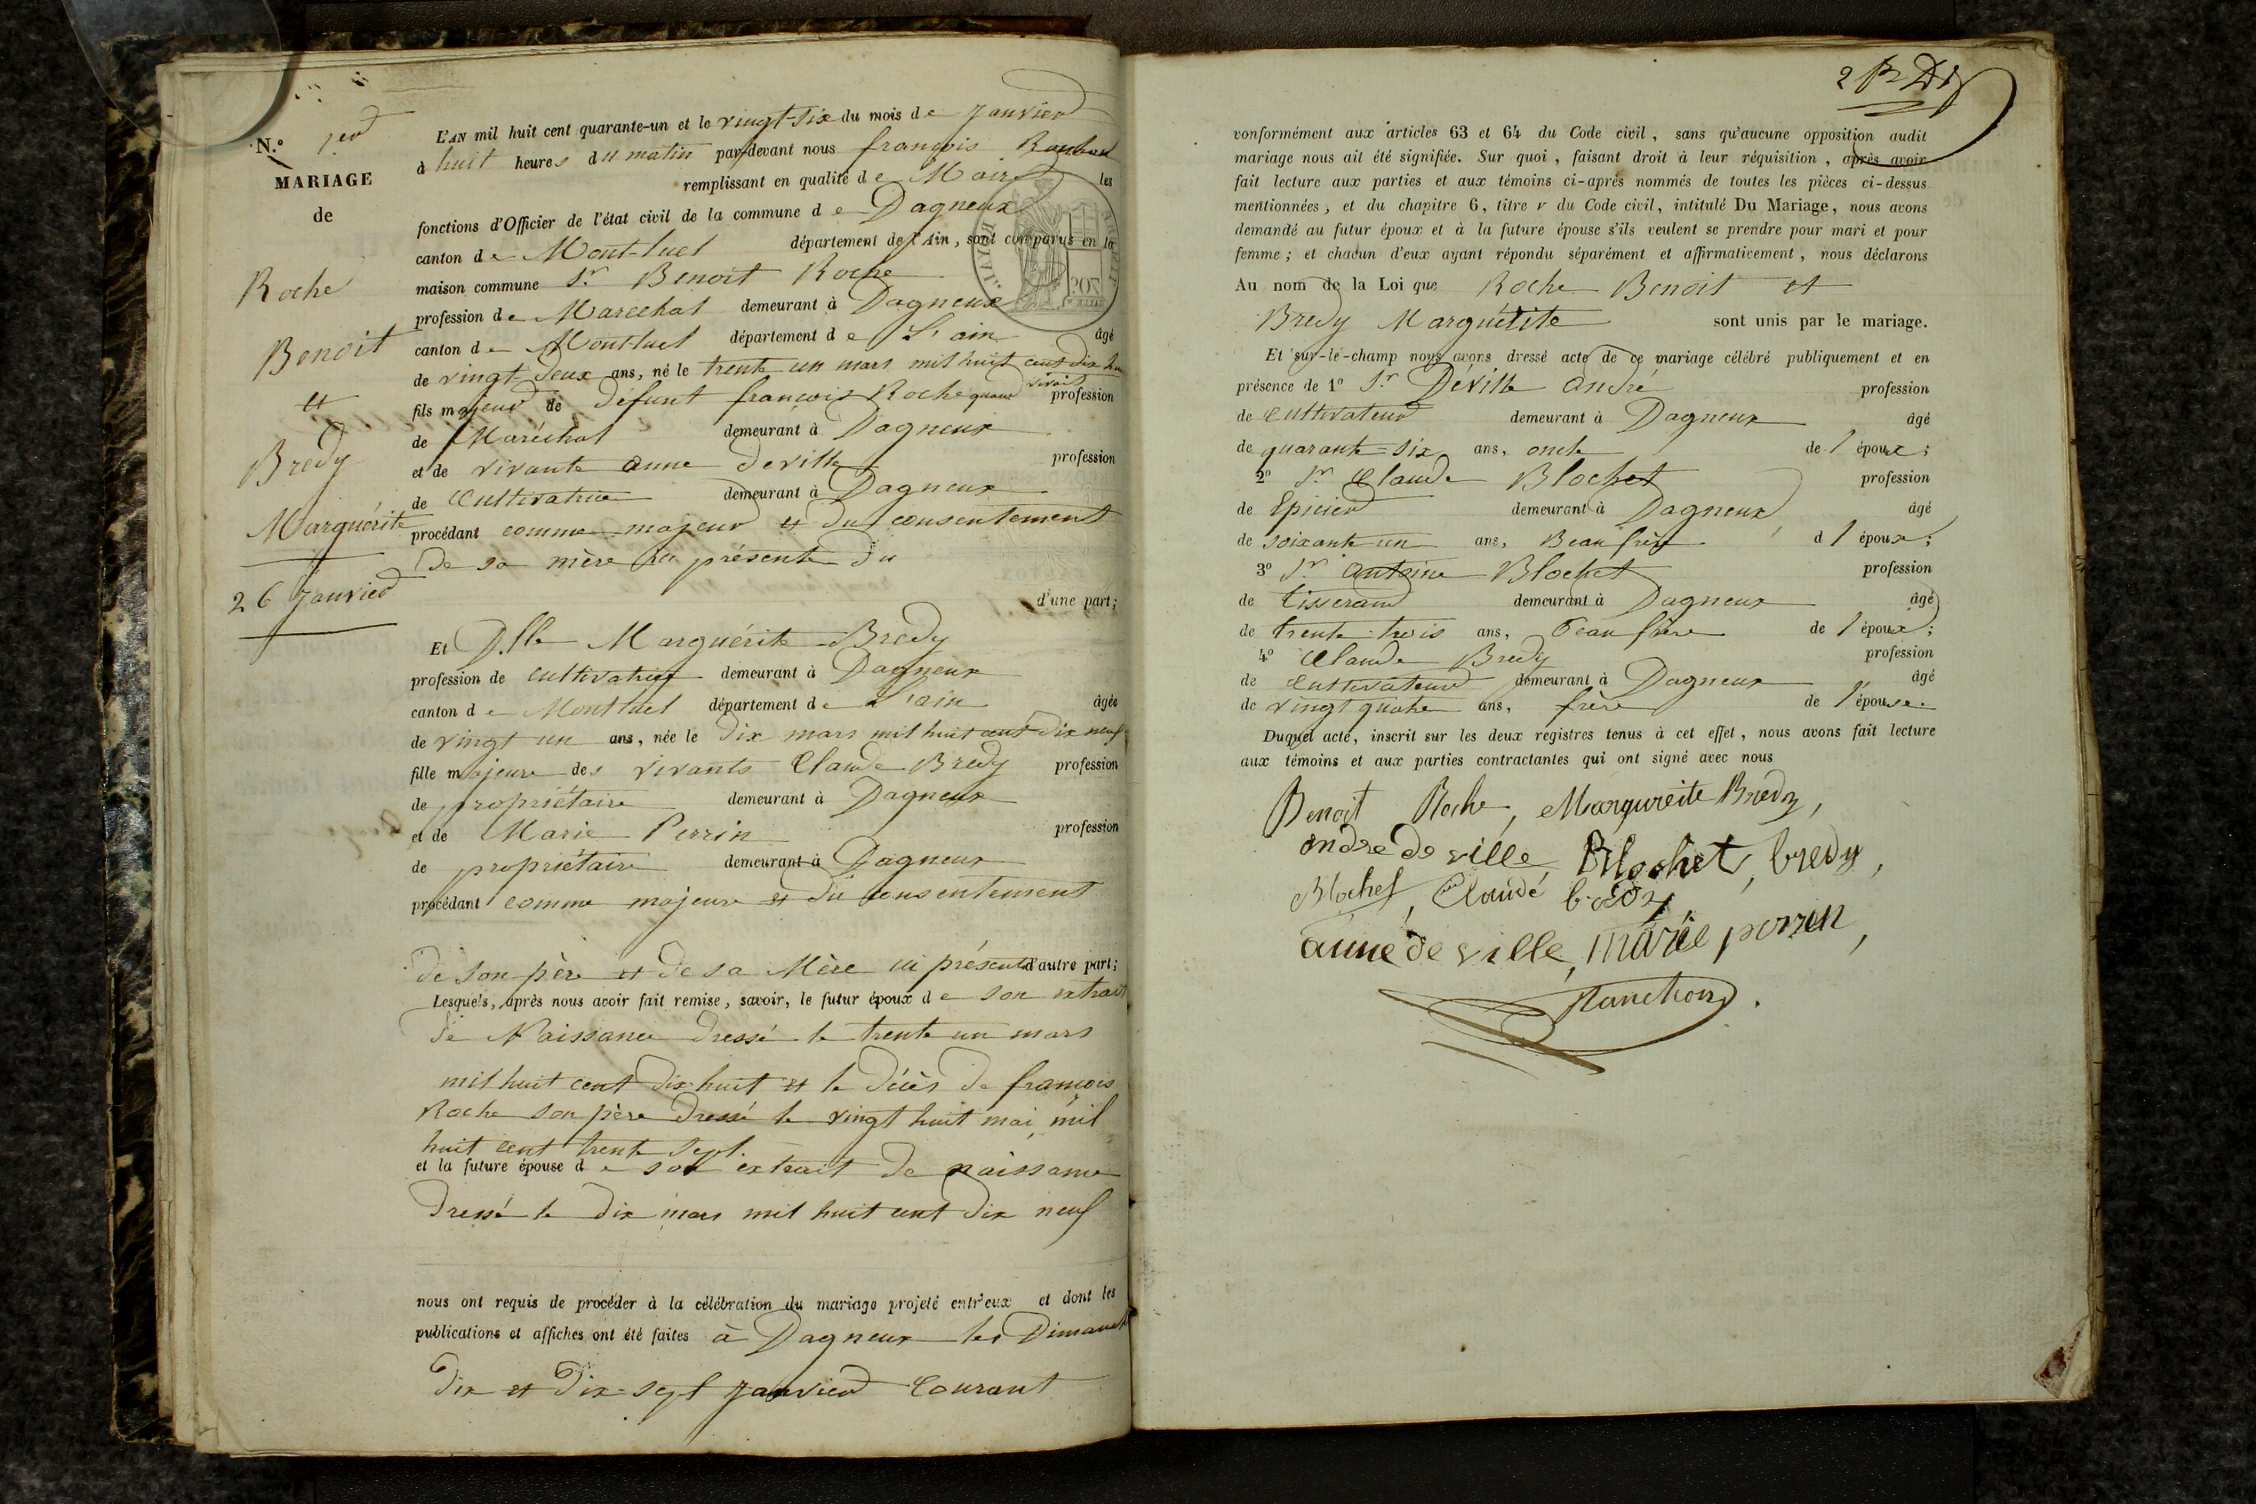 N.o 1er
MARIAGE
de
Roche
Benoit
et
Bredy
Marguérite
26 Janvier
L'AN mil huit cent quarante-un et le vingt-six du mois de Janvier
à huit heures du matin par-devant nous françois
remplissant en qualité de Maire les
fonctions d'Officier de l'état civil de la commune de Dagneux
canton de Mont-luel département de l'Ain, sont comparus en la
maison commune Sr Benoit Roche
profession de Maréchal demeurant à Dagneux
canton de Montluel département de L'ain âgé
de vingt-deux ans, né le trente un mars mil huit cent dix huit
fils majeur de défunt françois Roche quand vivait profession
de Maréchal demeurant à Dagneux
et de vivante anne deville profession
de Cultivatrice demeurant à Dagneux
procédant comme majeur et du consentement
de sa mère ici présente du
d'une part;
Et Dlle Marguérite Bredy
profession de cultivatrice demeurant à Dagneux
canton de Montluel département de L'ain âgée
de vingt un ans, née le dix mars mil huit cent dix neuf
fille majeure des vivants Claude Bredy profession
de propriétaire demeurant à Dagneux
et de Marie Perrin profession
de propriétaire demeurant à Dagneux
procédant comme majeure et du consentement
de son père et de sa Mère ici présents d'autre part;
Lesquels, après nous avoir fait remise, savoir, le futur époux de son extrait
de Naissance dressé le trente un mars
mil huit cent dix-huit et le décès de françois
Roche son père dressé le vingt huit mai mil
huit cent trente sept.
et la future épouse de son extrait de naissance
dressé le dix mars mil huit cent dix neuf
nous ont requis de procéder à la célébration du mariage projeté entr'eux et dont les
publications et affiches ont été faites à Dagneux les Dimanche
dix et dix-sept Janvier Courant
2
conformément aux articles 63 et 64 du Code civil, sans qu'aucune opposition audit
mariage nous ait été signifiée. Sur quoi, faisant droit à leur réquisition, après avoir
fait lecture aux parties et aux témoins ci-après nommés de toutes les pièces ci-dessus
mentionnées, et du chapitre 6, titre v du Code civil, intitulé Du Mariage, nous avons
demandé au futur époux et à la future épouse s'ils veulent se prendre pour mari et pour
femme; et chacun d'eux ayant répondu séparément et affirmativement, nous déclarons
Au nom de la Loi que Roche Benoit et
Bredy Marguérite sont unis par le mariage.
Et sur-le-champ nous avons dressé acte de ce mariage célébré publiquement et en
présence de 1o Sr Déville andré profession
de Cultivateur demeurant à Dagneux âgé
de quarante six ans, oncle de l'époux;
2o Sr Claude Blochet profession
de Epicier demeurant à Dagneux âgé
de soixante un ans, Beau frère d l'époux;
3o Sr antoine Blochet profession
de tisserand demeurant à Dagneux âgé
de trente-trois ans, Beau frère de l'époux;
4o Claude Bredy profession
de Cultivateur demeurant à Dagneux âgé
de vingt quatre ans, frère de l'épouse.
Duquel acte, inscrit sur les deux régistres tenus à cet effet, nous avons fait lecture
aux témoins et aux parties contractantes qui ont signé avec nous
Benoit Roche, Margureite Bredy,
andre de ville Blochet, bredy,
Blochet, Claudé bredy
anne de ville, marie perrin,